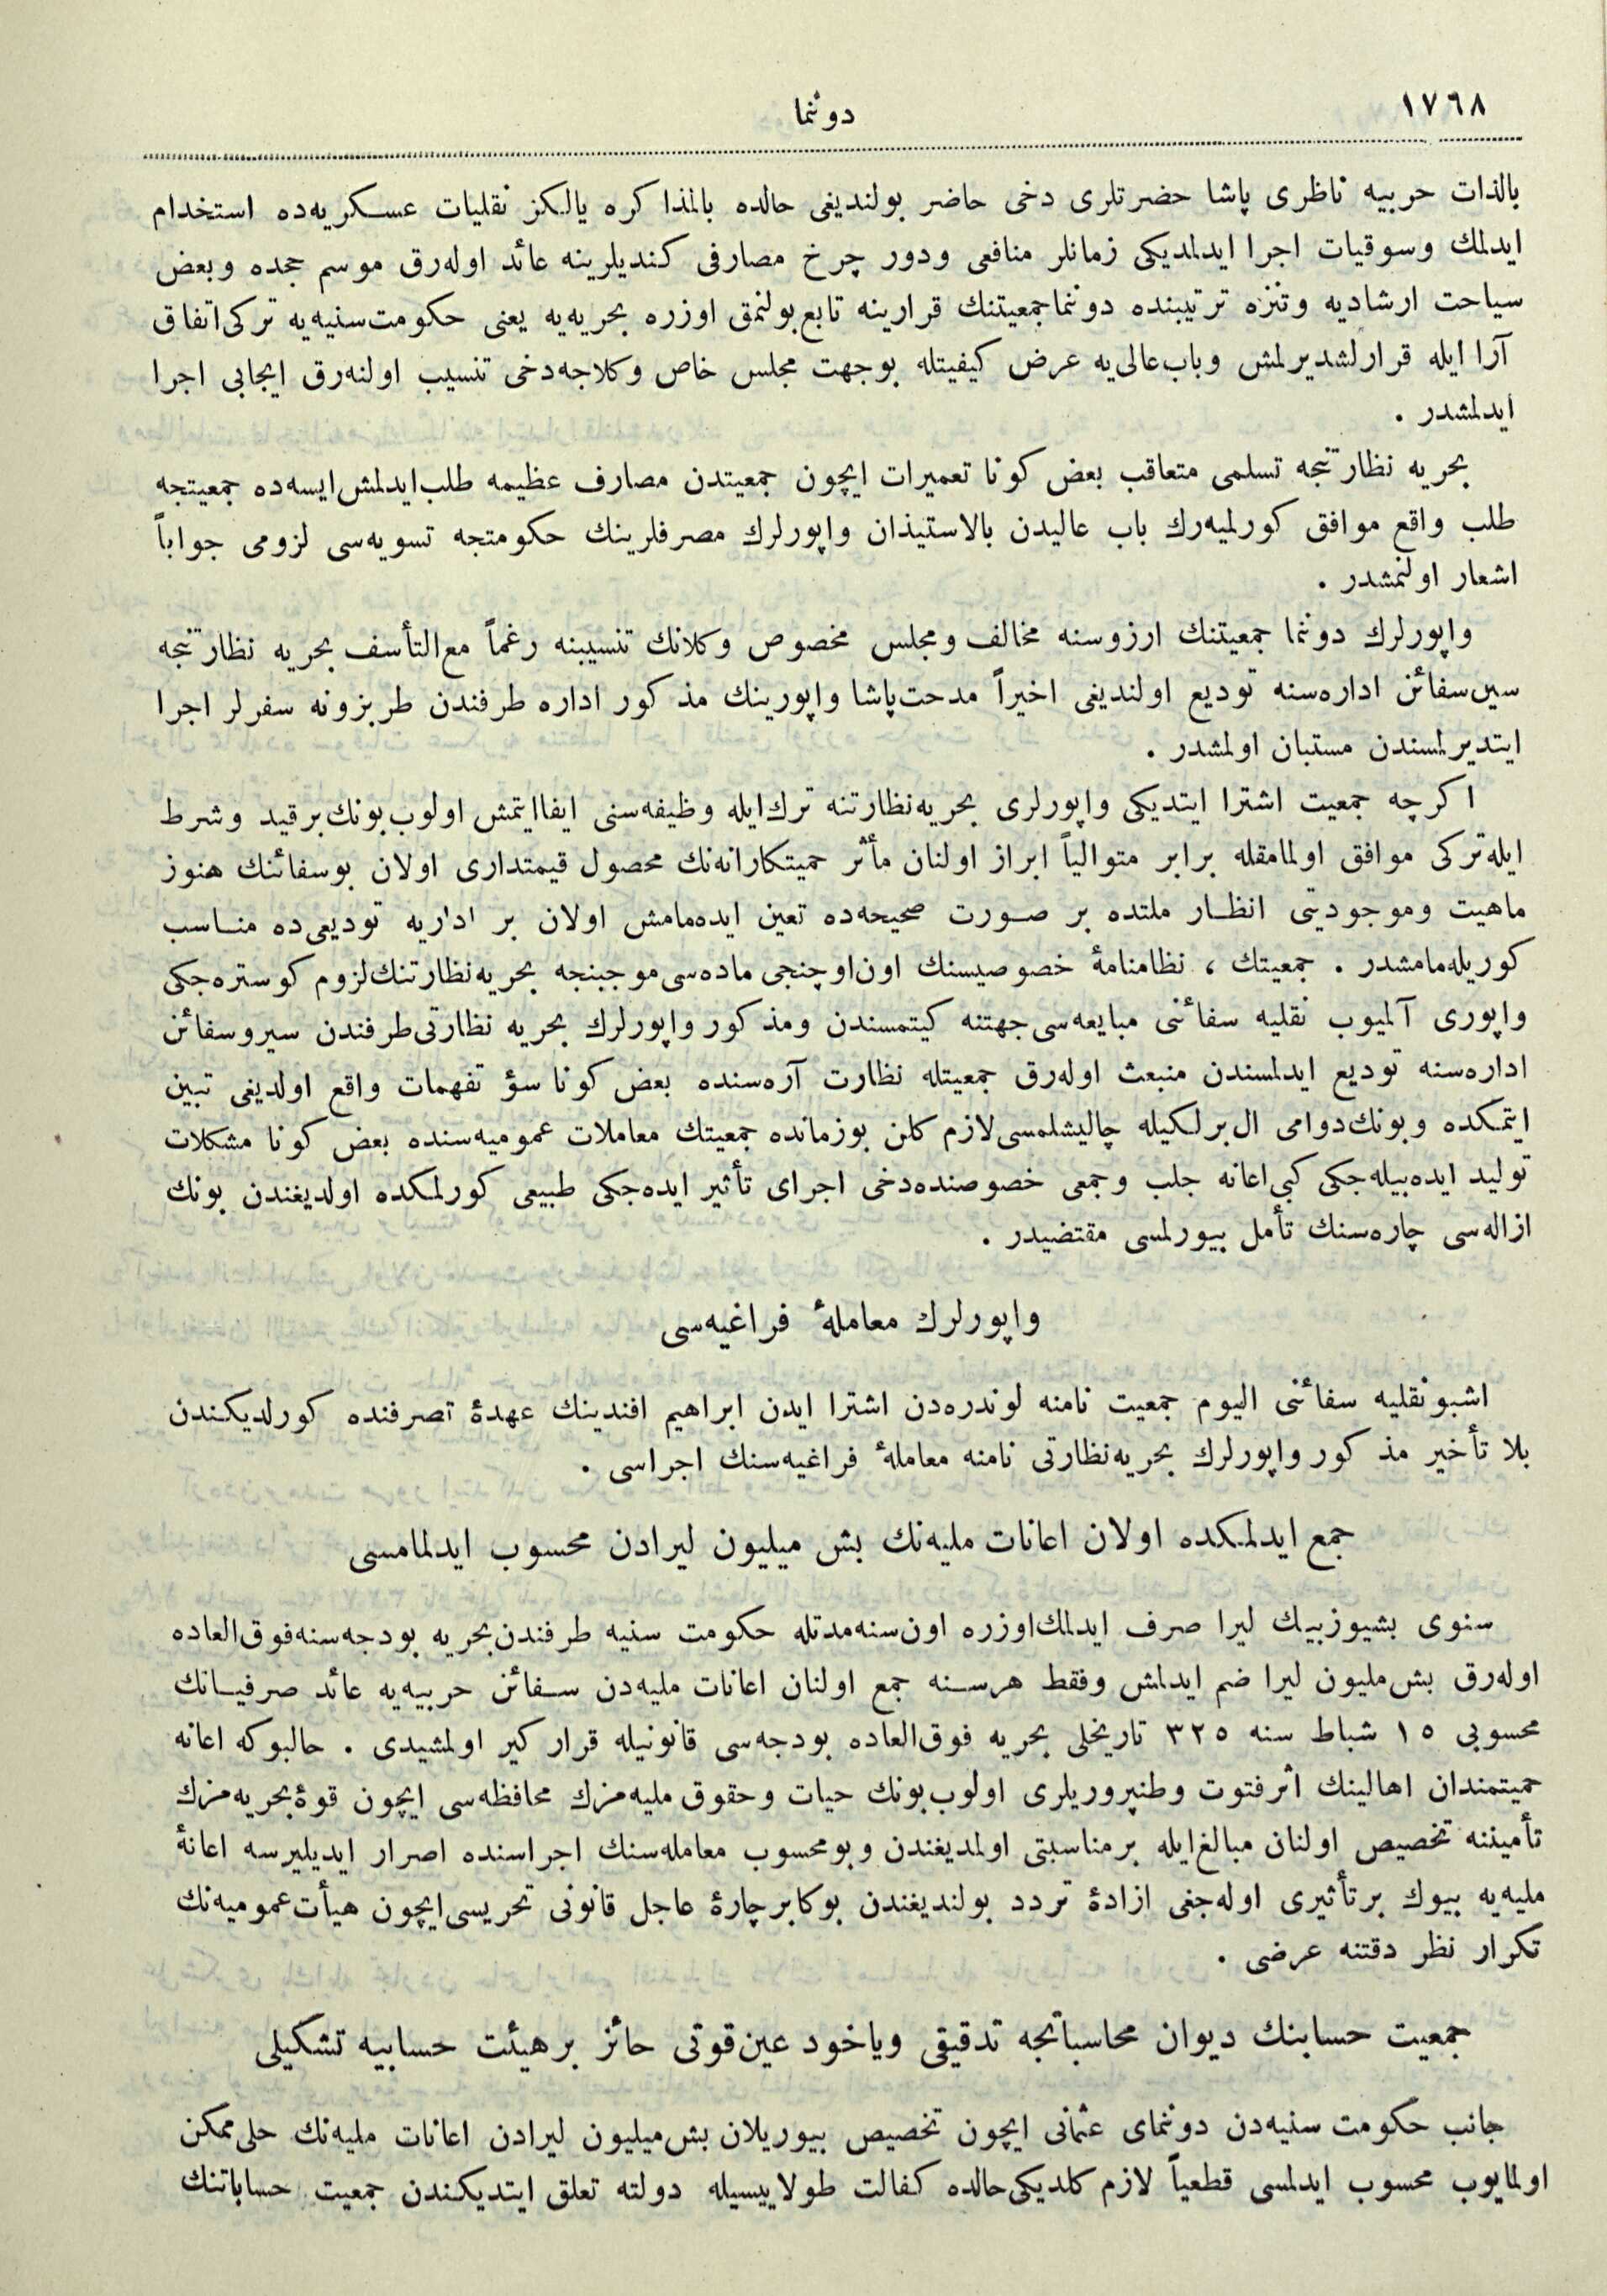 ١٧٦٨
دوننما
بالذات حربیه ناظری پاشا حضرتلری دخی حاضر بولندیغی حالده بالمذاکره یالکز نقلیات عسکریه‌ده استخدام
ایدلمك وسوقیات اجرا ایدلمدیکی زمانلر منافعی ودور چرخ مصارفی کندیلرینه عائد اوله‌رق موسم حجده وبعض
سیاحت ارشادیه وتنزه ترتیبنده دوننما جمعیتنك قرارینه تابع بولنمق اوزره بحریه‌یه یعنی حکومت سنیه‌یه ترکی اتفاق
آرا ایله قرارلشدیرلمش وباب عالی‌یه عرض کیفیتله بوجهت مجلس خاص وکلاجه دخی تنسیب اولنه‌رق ایجابی اجرا
ایدلمشدر .
بحریه نظارتنجه تسلمی متعاقب بعض کونا تعمیرات ایچون جمعیتدن مصارف عظیمه طلب ایدلمش ایسه‌ده جمعیتجه
طلب واقع موافق کورلمیه‌رك باب عالیدن بالاستیذان واپورلرك مصرفلرینك حکومتجه تسویه‌سی لزومی جواباً
اشعار اولنمشدر .
واپورلرك دوننما جمعیتنك ارزوسنه مخالف ومجلس مخصوص وکلانك تنسیبنه رغماً مع التأسف بحریه نظارتنجه
سیر سفائن اداره‌سنه تودیع اولندیغی اخیراً مدحت پاشا واپورینك مذکور اداره طرفندن طربزونه سفرلر اجرا
ایتدیرلمسندن مستبان اولمشدر .
اکرچه جمعیت اشترا ایتدیکی واپورلری بحریه نظارتنه ترك ایله وظیفه‌سنی ایفا ایتمش اولوب بونك برقید وشرط
ایله ترکی موافق اولمامقله برابر متوالیاً ابراز اولنان مأثر حمیتکارانه‌نك محصول قیمتداری اولان بوسفائنك هنوز
ماهیت وموجودیتی انظار ملتده بر صورت صحیحه‌ده تعین ایده‌مامش اولان بر اداریه تودیعی‌ده مناسب
کوریله‌مامشدر . جمعیتك ، نظامنامهٔ خصوصیسنك اون اوچنجی ماده‌سی موجبنجه بحریه نظارتنك لزوم کوستره‌جکی
واپوری آلمیوب نقلیه سفائنی مبایعه‌سی جهتنه کیتمسندن ومذکور واپورلرك بحریه نظارتی طرفندن سیر وسفائن
اداره‌سنه تودیع ایدلمسندن منبعث اوله‌رق جمعیتله نظارت آره‌سنده بعض کونا سؤ تفهمات واقع اولدیغی تبین
ایتمکده وبونك دوامی ال برلکیله چالیشلمسی لازم کلن بوزمانده جمعیتك معاملات عمومیه‌سنده بعض کونا مشکلات
تولید ایده‌بیله‌جکی کبی اعانه جلب وجمعی خصوصنده دخی اجرای تأثیر ایده‌جکی طبیعی کورلمکده اولدیغندن بونك
ازاله‌سی چاره‌سنك تأمل بیورلمسی مقتضیدر .
واپورلرك معاملهٔ فراغیه‌سی
اشبو نقلیه سفائنی الیوم جمعیت نامنه لوندره‌دن اشترا ایدن ابراهیم افندینك عهدهٔ تصرفنده کورلدیکندن
بلا تأخیر مذکور واپورلرك بحریه نظارتی نامنه معاملهٔ فراغیه‌سنك اجراسی .
جمع ایدلمکده اولان اعانات ملیه‌نك بش میلیون لیرادن محسوب ایدلمامسی
سنوی بشیوز بیك لیرا صرف ایدلمك اوزره اون سنه مدتله حکومت سنیه طرفندن بحریه بودجه‌سنه فوق العاده
اوله‌رق بش ملیون لیرا ضم ایدلمش وفقط هرسنه جمع اولنان اعانات ملیه‌دن سفائن حربیه‌یه عائد صرفیاتك
محسوبی ١٥ شباط سنه ٣٢٥ تاریخلی بحریه فوق العاده بودجه‌سی قانونیله قرارکیر اولمشیدی . حالبوکه اعانه
حمیتمندان اهالینك اثر فتوت وطنپروریلری اولوب بونك حیات وحقوق ملیه‌مزك محافظه‌سی ایچون قوهٔ بحریه‌مزك
تأمیننه تخصیص اولنان مبالغ ایله برمناسبتی اولمدیغندن وبو محسوب معامله‌سنك اجراسنده اصرار ایدیلیرسه اعانهٔ
ملیه‌یه بیوك برتأثیری اوله‌جغی ازادهٔ تردد بولندیغندن بوکا برچارهٔ عاجل قانونی تحریسی ایچون هیأت عمومیه‌نك
تکرار نظر دقتنه عرضی .
جمعیت حسابنك دیوان محاسباتجه تدقیقی ویاخود عین قوتی حائز برهیئت حسابیه تشکیلی
جانب حکومت سنیه‌دن دوننمای عثمانی ایچون تخصیص بیوریلان بش میلیون لیرادن اعانات ملیه‌نك حلی ممکن
اولمایوب محسوب ایدلمسی قطعیاً لازم کلدیکی حالده کفالت طولاییسیله دولته تعلق ایتدیکندن جمعیت حساباتنك